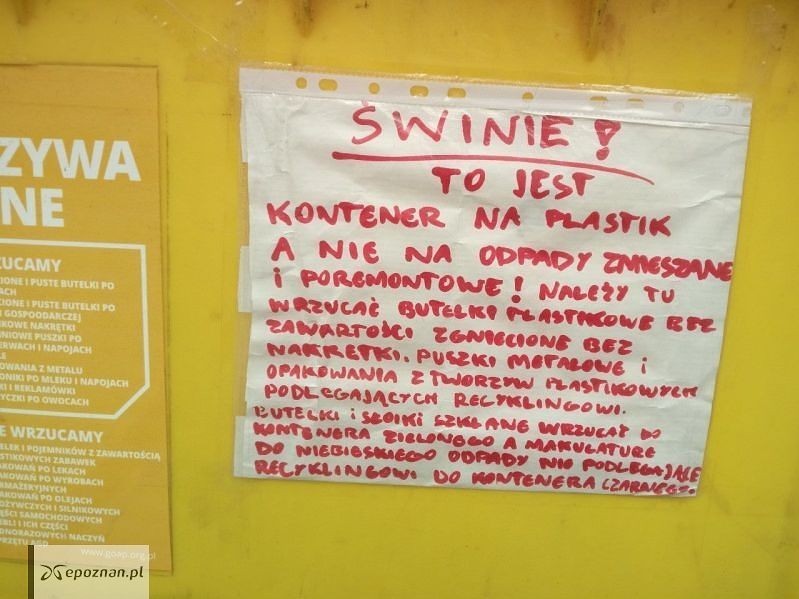 ZYWA
NE
ZUCAMY
IONE I PUSTE BUTELKI PO
ACH
CIONE I PUSTE BUTELKI PO
I GOSPODARCZEJ
KOWE NAKRĘTKI
NIOWE PUSZKI PO
ERWACH I NAPOJACH
LE
OWANIA Z METALU
ONIKI PO MLEKU I NAPOJACH
KI I REKLAMÓWKI
YCZKI PO OWOCACH
E WRZUCAMY
ELEK I POJEMNIKÓW Z ZAWARTOŚCIĄ
STIKOWYCH ZABAWEK
AKOWAŃ PO LEKACH
AKOWAŃ PO WYROBACH
RMAŻERYJNYCH
AKOWAŃ PO OLEJACH
OŻYWCZYCH I SILNIKOWYCH
ĘŚCI SAMOCHODOWYCH
EBLI I ICH CZĘŚCI
DNORAZOWYCH NACZYŃ
PRZĘTU AGD
www.goap.org.pl
epoznan.pl
ŚWINIE!
TO JEST
KONTENER NA PLASTIK
A NIE NA ODPADY ZMIESZANE
I POREMONTOWE! NALEŻY TU
WRZUCAĆ BUTELKI PLASTIKOWE BEZ
ZAWARTOŚCI ZGNIECIONE BEZ
NAKRĘTKI. PUSZKI METALOWE I
OPAKOWANIA Z TWORZYW PLASTIKOWYCH
PODLEGAJĄCYCH RECYKLINGOWI.
BUTELKI I SŁOIKI SZKLANE WRZUCAĆ DO
KONTENERA ZIELONEGO A MAKULATURE
DO NIEBIESKIEGO ODPADY NIE PODLEGAJĄCE
RECYKLINGOWI DO KONTENERA CZARNEGO.